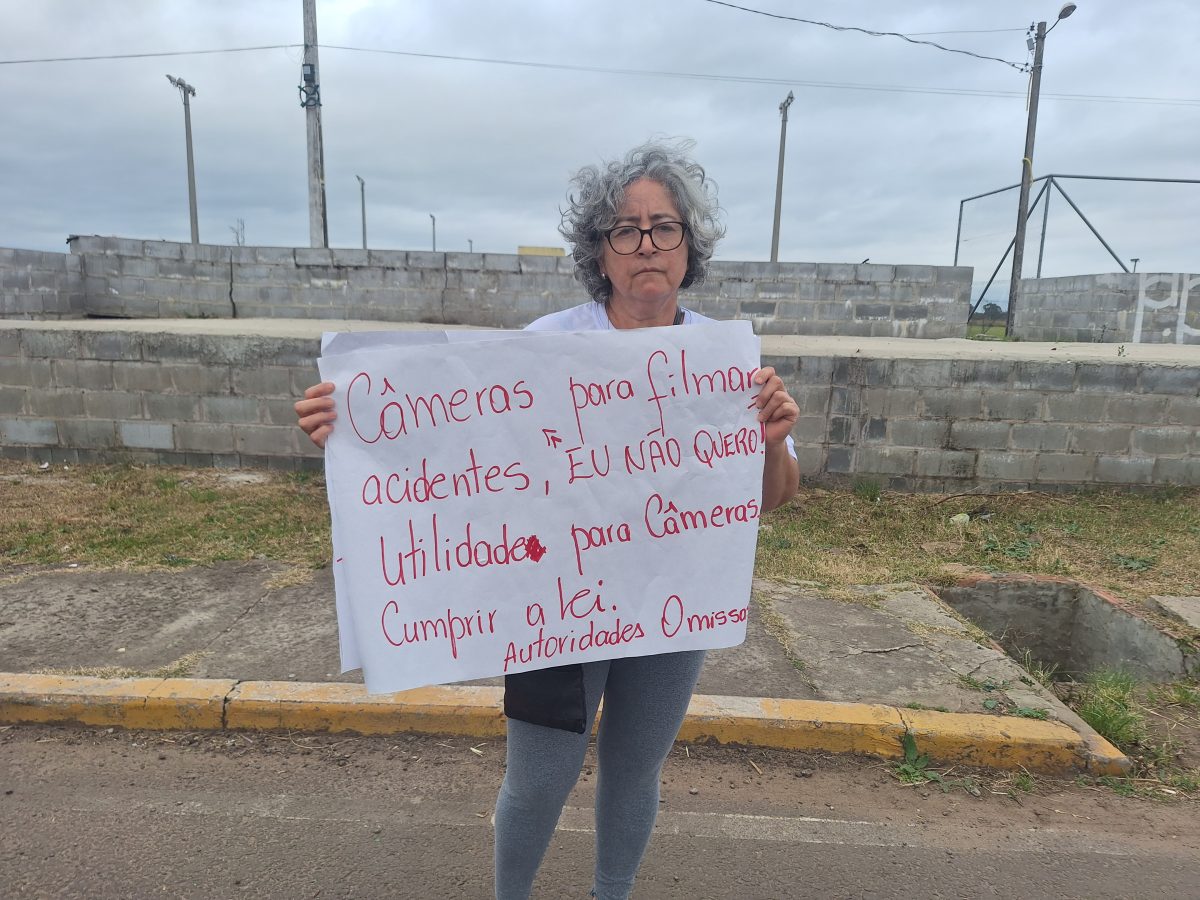 Câmeras para filmar
acidentes, EU NÃO QUERO!
Utilidade para Câmeras.
Cumprir a lei.
Autoridades Omissa